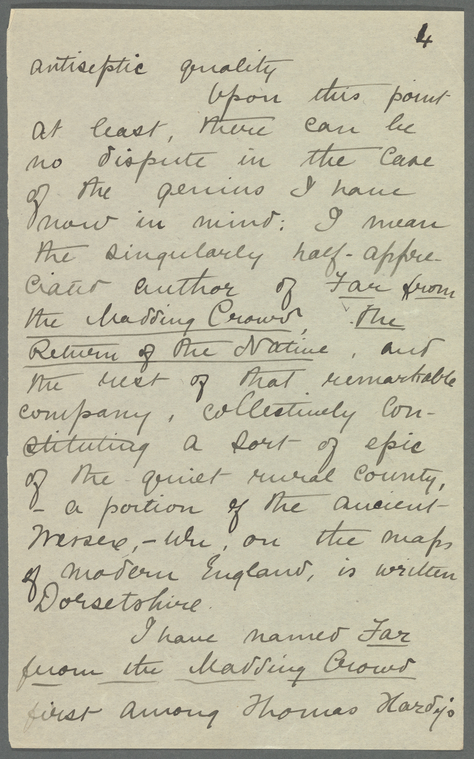 4
antiseptic quality
Upon this point
at least, there can be
no dispute in the case
of the genius I have
now in mind: I mean
the singularly half-appre-
ciated author of Far from
the Madding Crowd, The
Return of the Native, and
the rest of that remarkable
company, collectively con-
stituting a sort of epic
of the quiet rural county,
- a portion of the ancient
Wessex, - wh, on the maps
of modern England, is written
Dorsetshire.
I have named Far
from the Madding Crowd
first among Thomas Hardy's